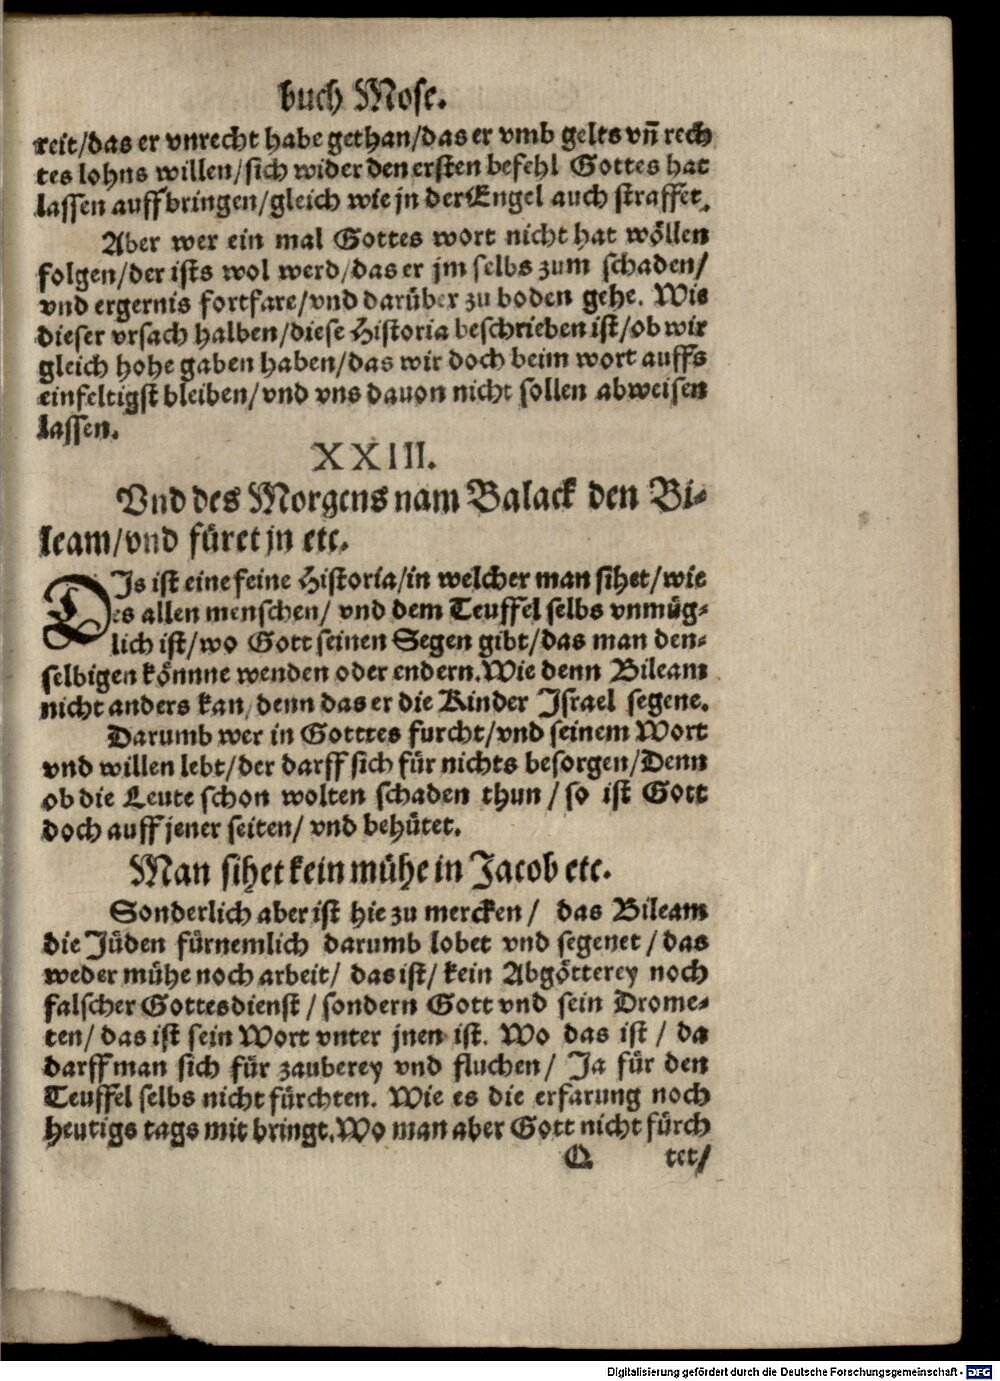 buch Mose.
reit/das er vnrecht habe gethan/das er vmb gelts vn̄ rech
tes lohns willen/sich wider den ersten befehl Gottes hat
lassen auffbringen/gleich wie jn der Engel auch straffet.
Aber wer ein mal Gottes wort nicht hat wöllen
folgen/der ists wol werd/das er jm selbs zum schaden/
vnd ergernis fortfare/vnd darüber zu boden gehe. Wie
dieser vrsach halben/diese Historia beschrieben ist/ob wir
gleich hohe gaben haben/das wir doch beim wort auffs
einfeltigst bleiben/vnd vns dauon nicht sollen abweisen
lassen.
XXIII.
Vnd des Morgens nam Balack den Bi-
leam/vnd füret jn etc.
DJs ist eine feine Historia/in welcher man sihet/wie
es allen menschen/ vnd dem Teuffel selbs vnmüg-
lich ist/wo Gott seinen Segen gibt/das man den-
selbigen könnne wenden oder endern.Wie denn Bileam
nicht anders kan/denn das er die Kinder Jsrael segene.
Darumb wer in Gotttes furcht/vnd seinem Wort
vnd willen lebt/der darff sich für nichts besorgen/Denn
ob die Leute schon wolten schaden thun/so ist Gott
doch auff jener seiten/ vnd behütet.
Man sihet kein mühe in Jacob etc.
Sonderlich aber ist hie zu mercken/ das Bileam
die Jüden fürnemlich darumb lobet vnd segenet/das
weder mühe noch arbeit/ das ist/ kein Abgötterey noch
falscher Gottesdienst/sondern Gott vnd sein Drome-
ten/ das ist sein Wort vnter jnen ist. Wo das ist/ da
darff man sich für zauberey vnd fluchen/ Ja für den
Teuffel selbs nicht fürchten. Wie es die erfarung noch
heutigs tags mit bringt.Wo man aber Gott nicht fürch
Q tet/
Digitalisierung gefördert durch die Deutsche Forschungsgemeinschaft - DFG